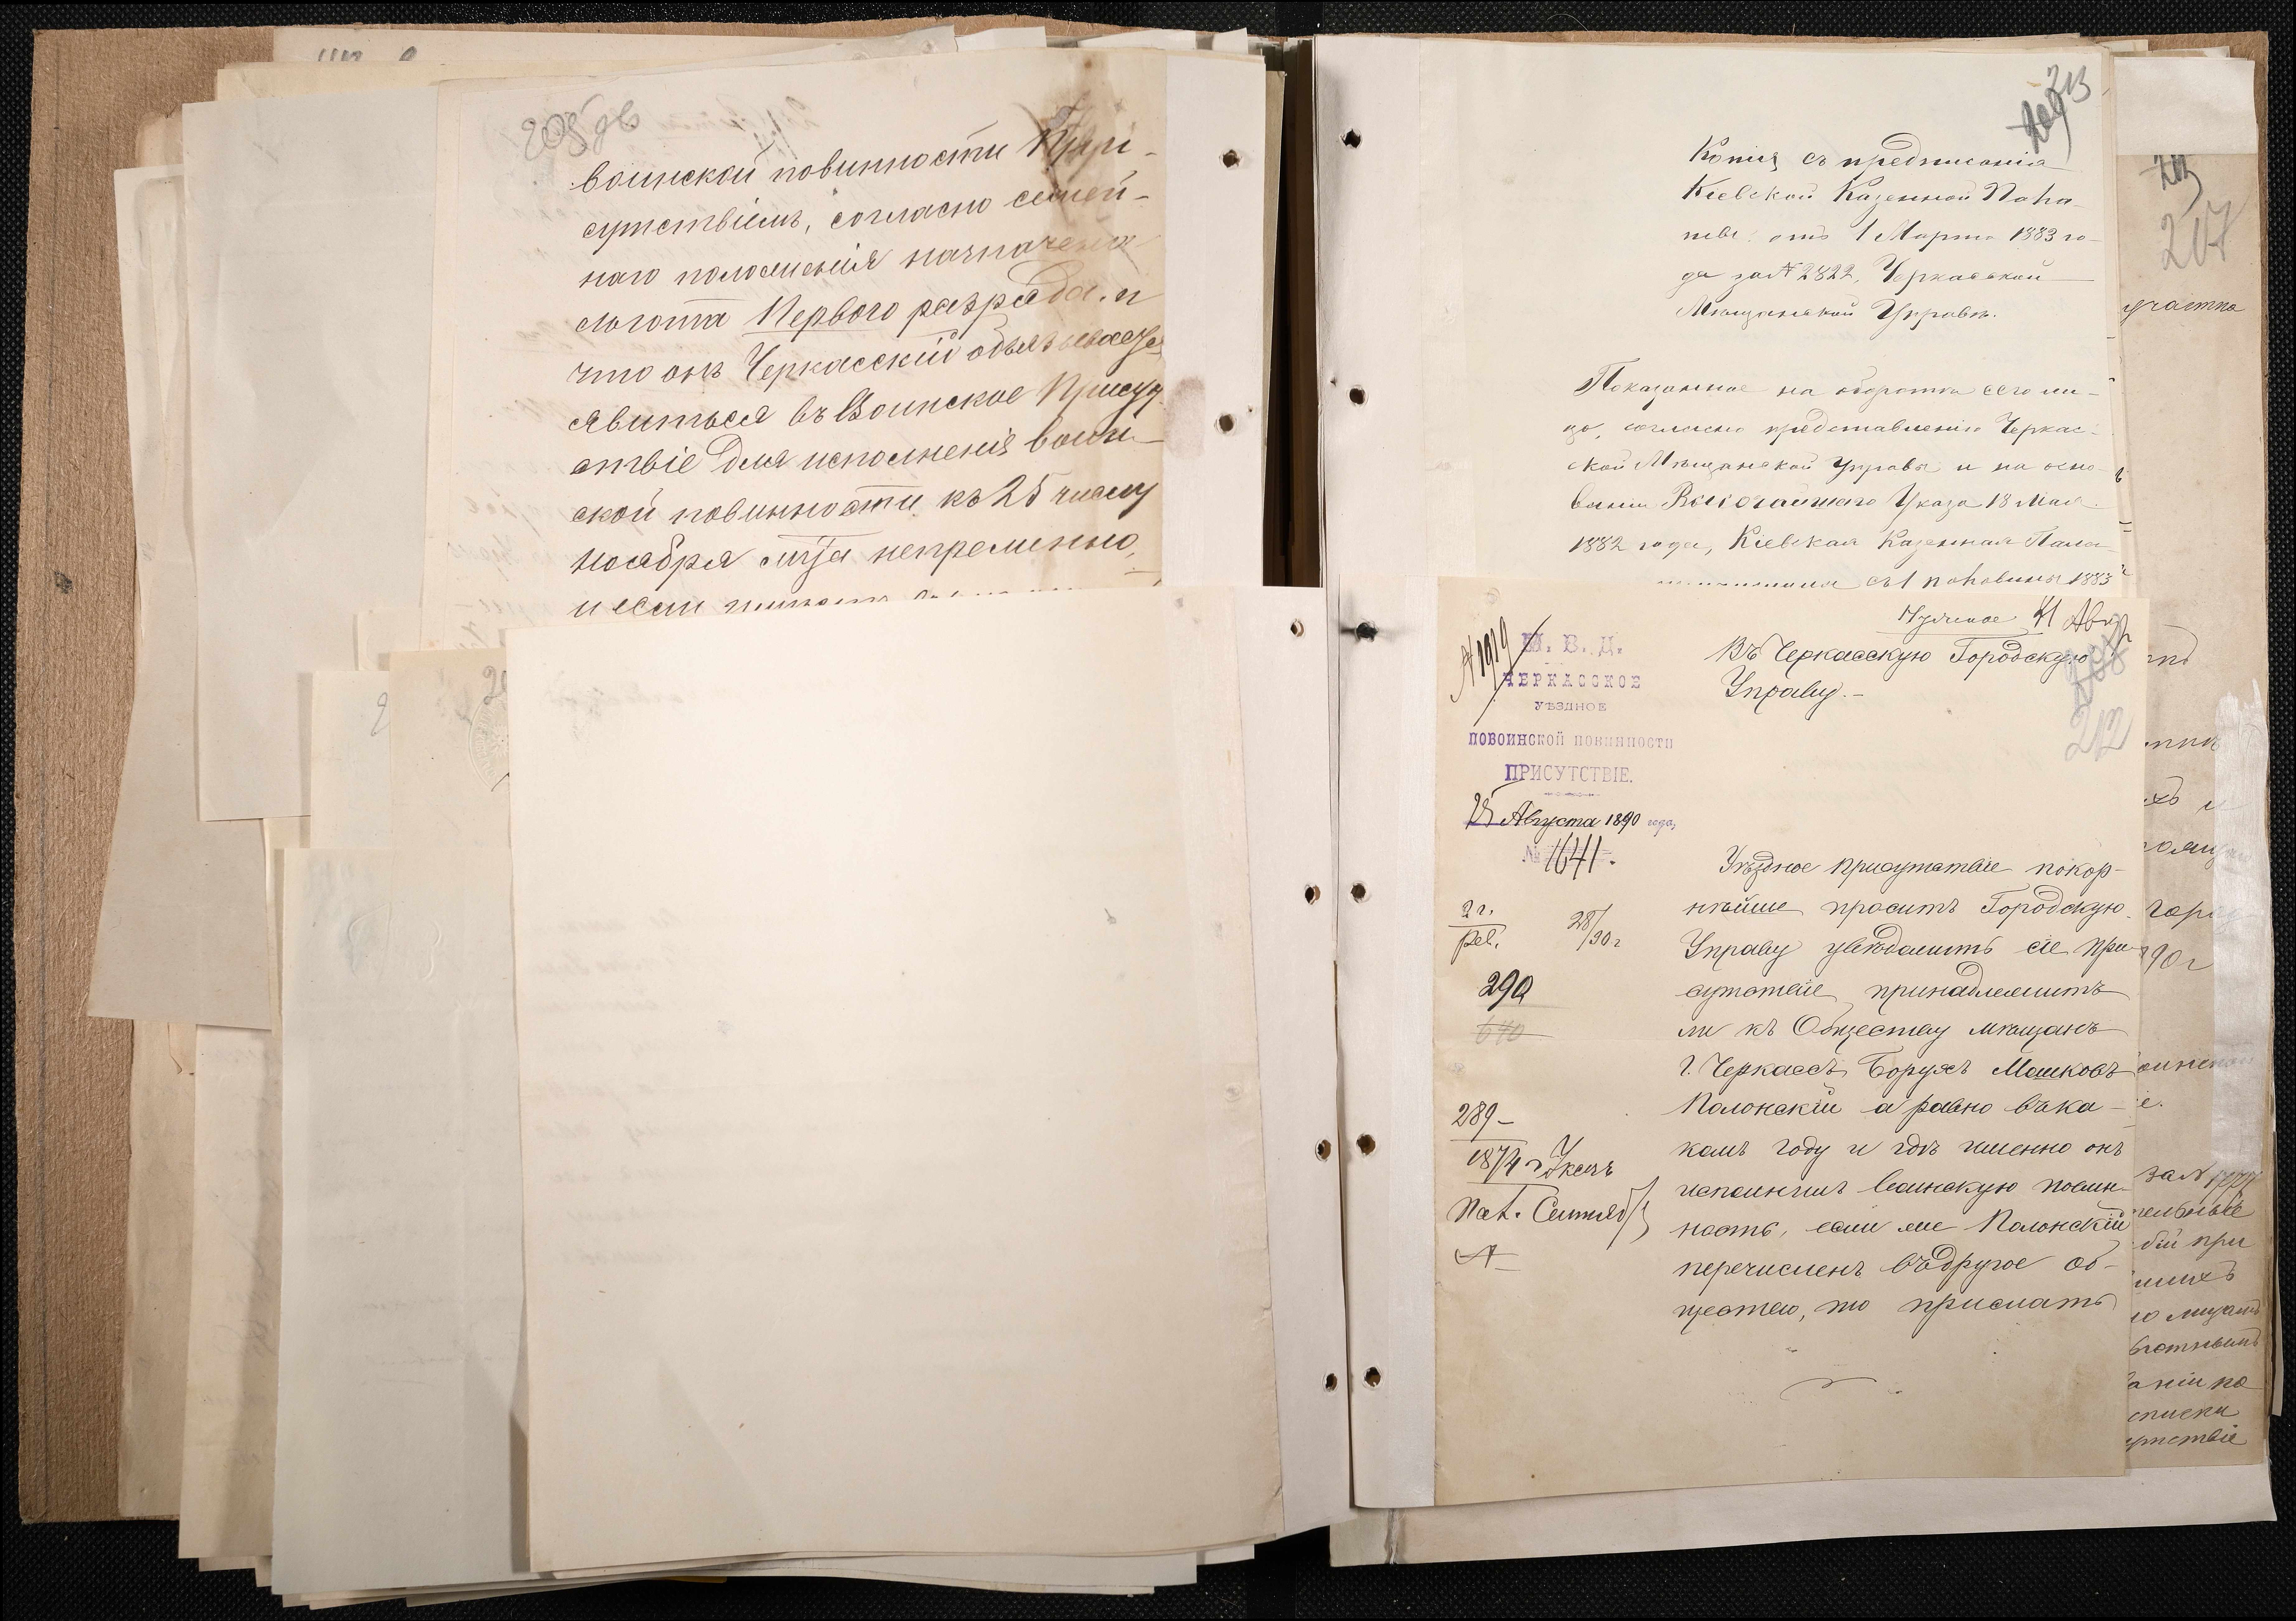 205 об
воинской повинности При-
сутствіемъ, согласно семей-
наго положенія назначена
льгота Перваго разряда. и
что онъ Черкасскій обязывается
явиться въ Воинское Присут
ствіе для исполненія воин-
ской повинности къ 25 числу
ноября м-ца непременно,
и если
213
Копія съ предписанія
Кіевской Казенной Пала
ты отъ 1 Марта 1883 го-
да за № 2822, Черкасской
Мѣщанской Управѣ.
Показанное на оборотѣ сего ли-
цо, согласно представленію Черкас-
ской Мѣщанской Управы и на осно-
ваніи Высочайшаго Указа 18 Мая
1882 года, Кіевская Казенная Пала
съ 1 половины 1883
207
участка
Нужное 31 Авг
№ 1919
М. В. Д.
ЧЕРКАССКОЕ
УѢЗДНОЕ
ПО ВОИНСКОЙ ПОВИННОСТИ
ПРИСУТСТВІЕ.
Августа 1890 года,
№ 1641.
Въ Черкасскую Городскую
Управу.-
212
2 г.
рев.
28/90 г
290
640
289-
1874 г
Сентяб
Уѣздное Присутствіе покор-
нѣйше проситъ Городскую
Управу увѣдомить сіе При
сутствіе, принадлежитъ
ли къ Обществу мѣщанъ
г. Черкассъ Борухъ Машковъ
Полонскій а равно въ ка-
комъ году и гдѣ именно онъ
исполнилъ воинскую повин-
ность, если же Полонскій
перечисленъ въ другое об-
щество, то прислать
90 г
за №
при
списки